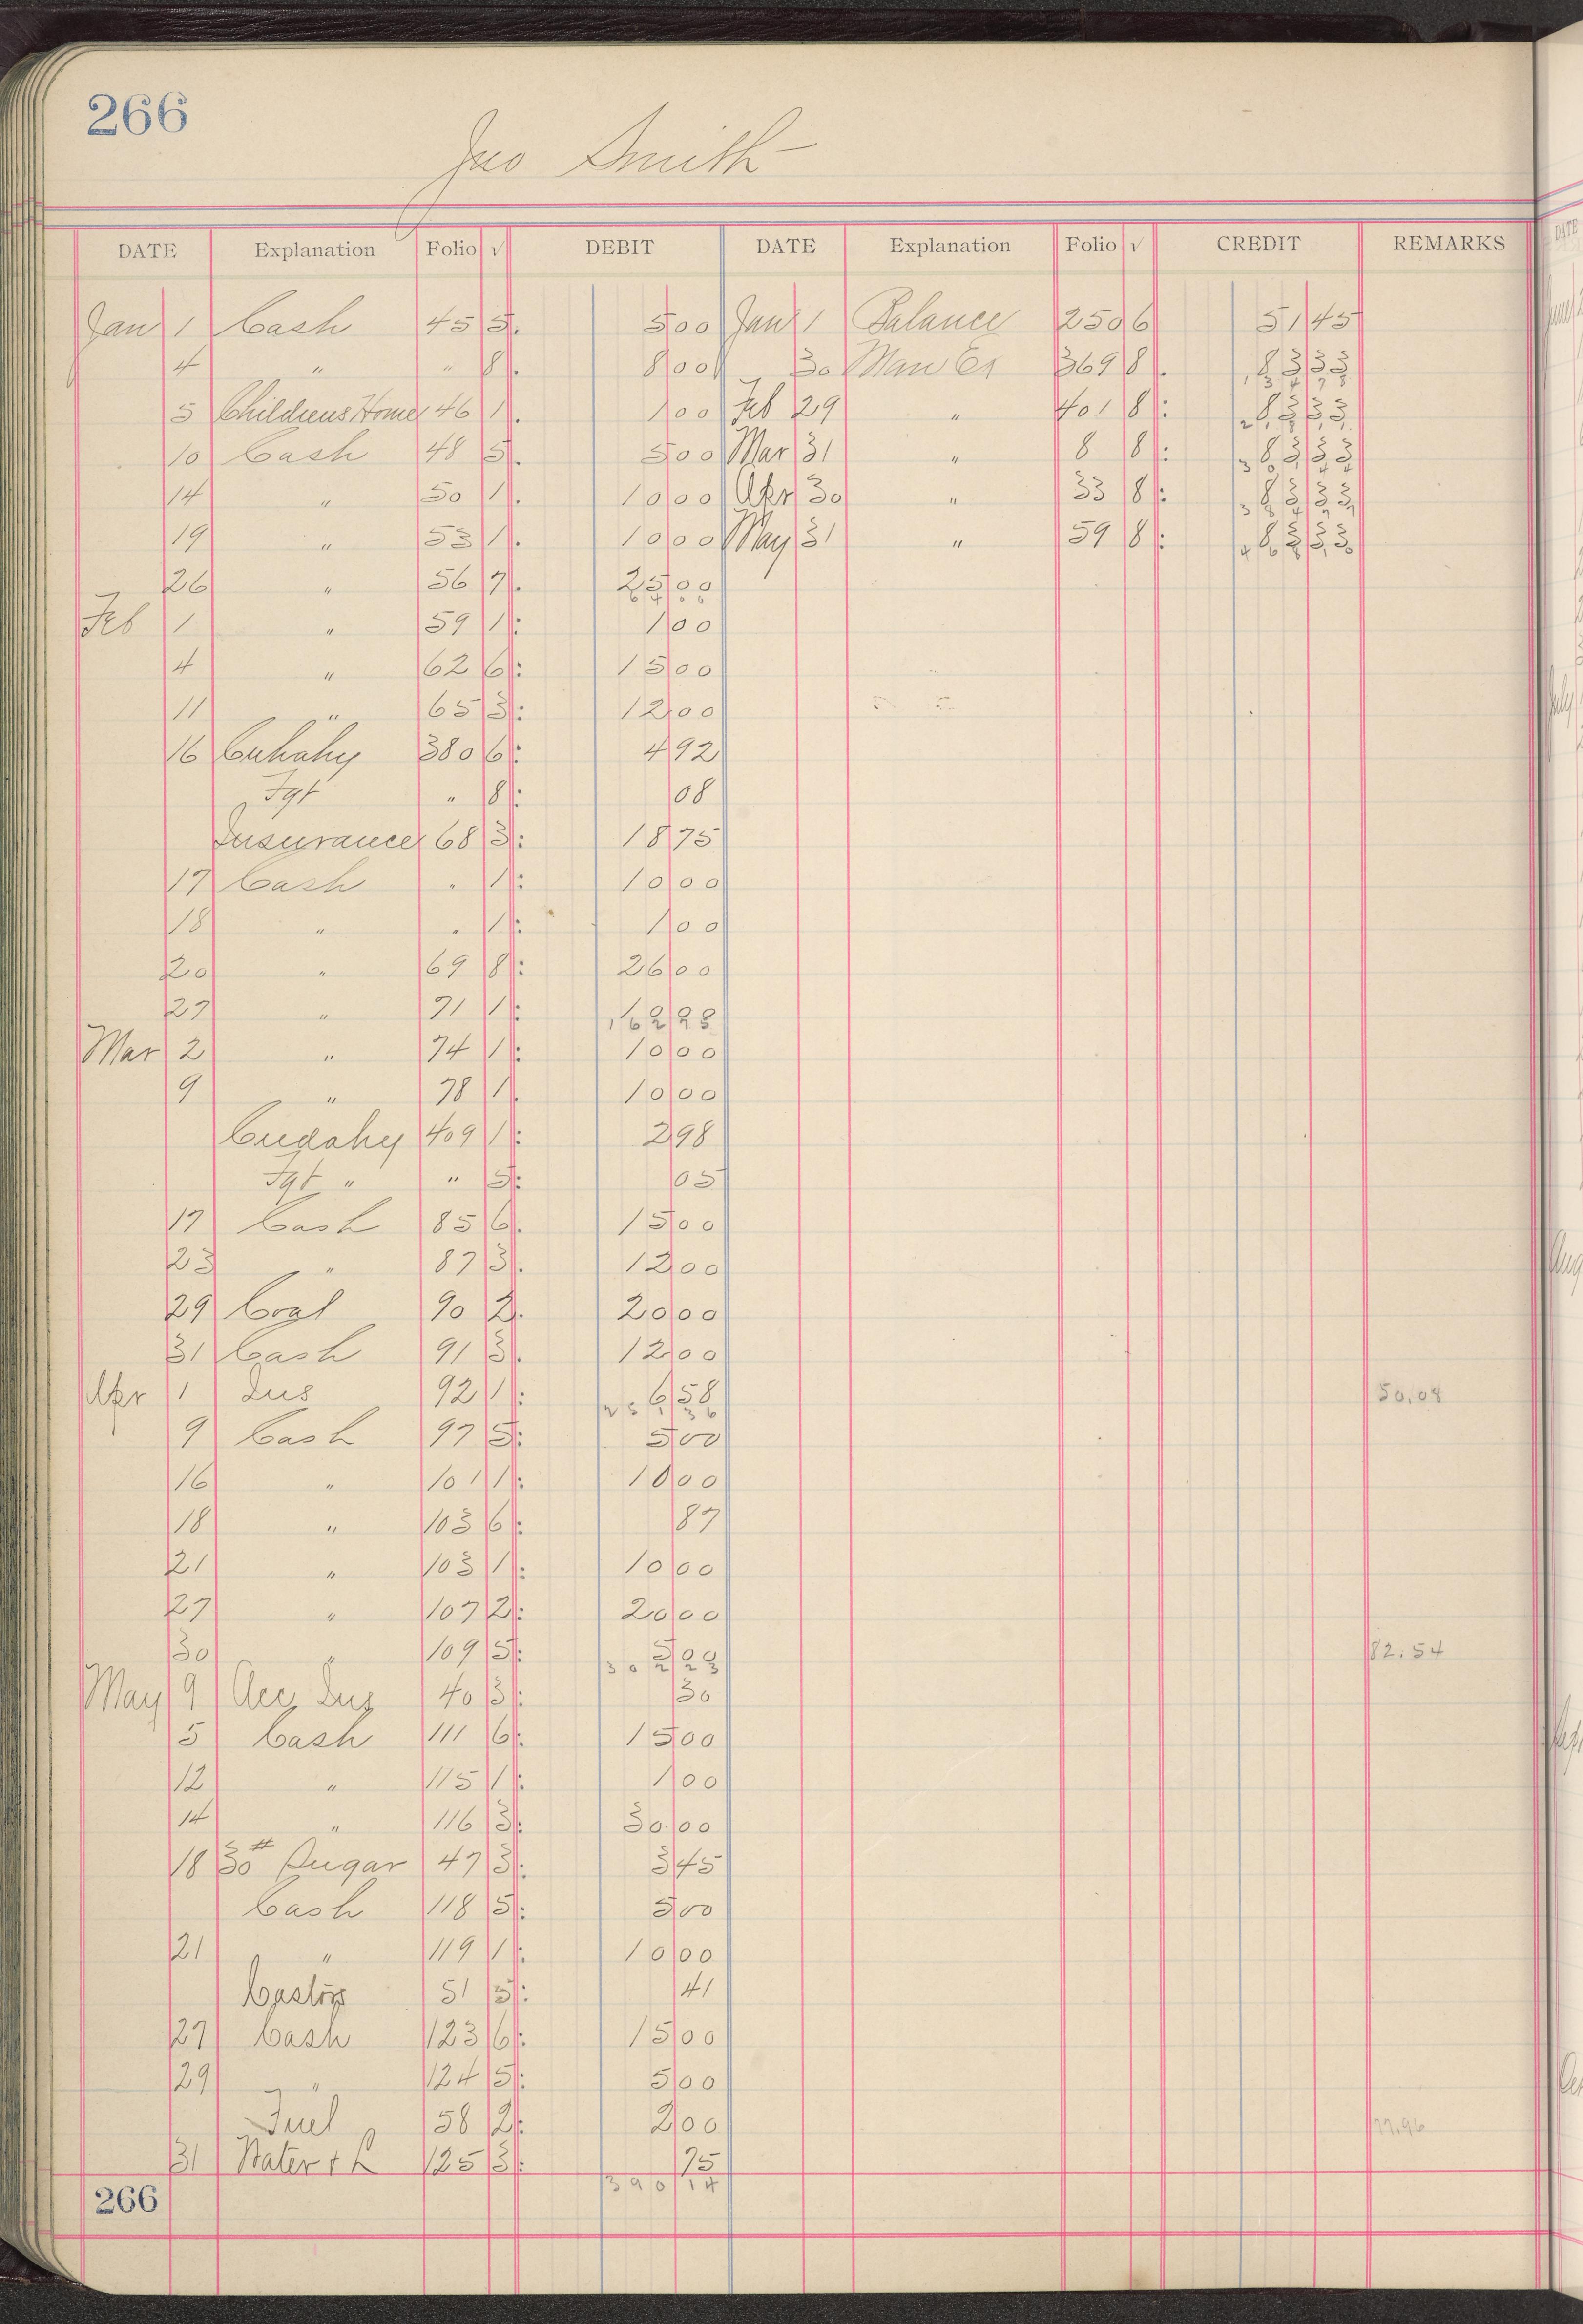 266
Jno Smith
DATE Explanation Folio √ DEBIT DATE Explanation Folio √ CREDIT REMARKS
Jan 1 Cash 45 5. 5 00 Jan 1 Balance 250 6 51 45
4 " " 8. 8 00 30 Man Ex 369 8. 83 33
5 Childrens Home 46 1. 1 00 Feb 29 " 401 8: 83 33
10 Cash 48 5. 5 00 Mar 31 " 8 8: 83 33
14 " 50 1. 10 00 Apr 30 " 33 8: 83 33
19 " 53 1. 10 00 May 31 " 59 8: 83 33
26 " 56 7. 25 00
64 00
Feb 1 " 59 1: 1 00
4 " 62 6: 15 00
11 " 65 3: 12 00
16 Cuhahy 380 6: 4 92
Fgt " 8: 08
Insurance 68 3: 18 75
17 Cash " 1: 10 00
18 " " 1: 1 00
20 " 69 8: 26 00
27 " 71 1:
Mar 2 " 74 1: 10 00
9 " 78 1. 10 00
Cudahy 409 1: 2 98
Fgt " " 5: 05
17 Cash 85 6. 15 00
23 " 87 3. 12 00
29 Coal 90 2. 20 00
31 Cash 91 3. 12 00
Apr 1 Ins 92 1: 6 58 50.04
9 Cash 97 5: 5 00
16 " 101 1: 10 00
18 " 103 6: 87
21 " 103 1: 10 00
27 " 107 2: 20 00
30 " 109 5: 5 00 82.54
May 9 Acc Ins 40 3: 30
5 Cash 111 6: 15 00
12 " 115 1: 1 00
14 " 116 3: 30.00
18 30# Sugar 47 3: 3 45
Cash 118 5: 5 00
21 " 119 1: 10 00
Castings 51 5: 41
27 Cash 123 6: 15 00
29 " 124 5: 5 00
Fuel 58 2: 2 00 77.96
31 Water + L 125 3: 75
266 390 14